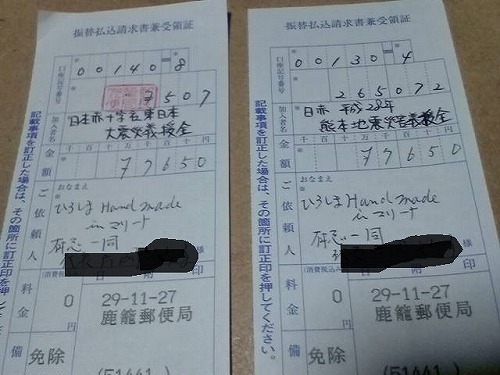 振替払込請求書兼受領証
口座記号番号
00140-8
7507
加入者名
日本赤十字社東日本
大震災義援金
金額
千百十万千百十円
77650
ご依頼人
おなまえ
ひろしま Hand made
in マリーナ
有志一同
様
(消費税込み)
料金
0円
日附印
29-11-27
鹿籠郵便局
備
免除
(51441)
記載事項を訂正した場合は、その箇所に訂正印を押してください。
振替払込請求書兼受領証
口座記号番号
00130-4
265072
加入者名
日赤 平成28年
熊本地震災害義援金
金額
千百十万千百十円
77650
ご依頼人
おなまえ
ひろしま Hand made
in マリーナ
有志一同
様
(消費税込み)
料金
0円
日附印
29-11-27
鹿籠郵便局
備
免除
(51441)
記載事項を訂正した場合は、その箇所に訂正印を押してください。